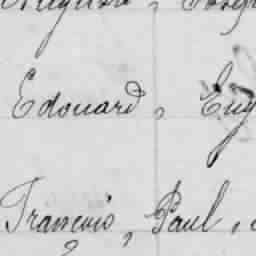 Edouard, Eug
François, Paul,